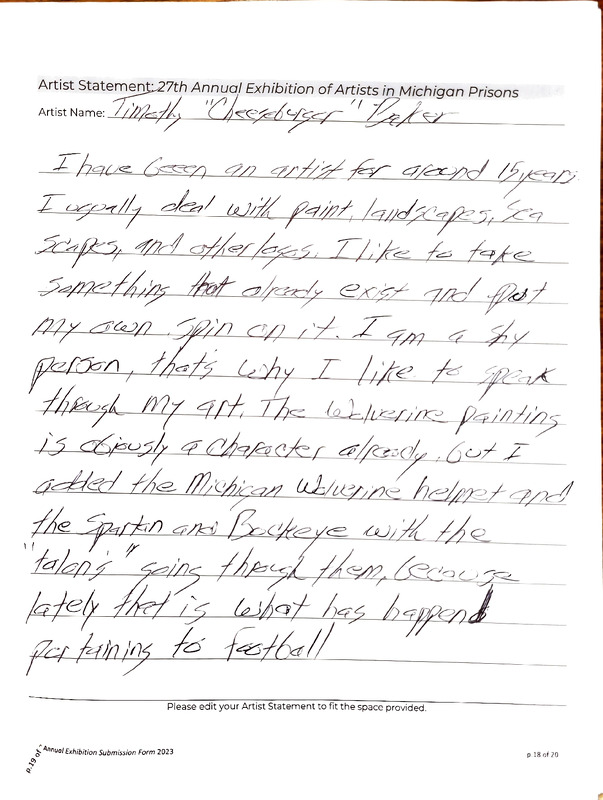 Artist Statement: 27th Annual Exhibition of Artists in Michigan Prisons
Artist Name: Timothy "Cheeseburger" Baker
I have been an artist for around 15 years
I usually deal with paint, landscapes, sea
scapes, and other logos. I like to take
something that already exist and put
my own spin on it. I am a shy
person, that's why I like to speak
through my art. The Wolverine painting
is obiously a character already, but I
added the Michigan Wolverine helmet and
the Spartan and Buckeye with the
"talons" going through them, because
lately that is what has happend
pertaining to football
Please edit your Artist Statement to fit the space provided.
p.19 of
Annual Exhibition Submission Form 2023
p 18 of 20